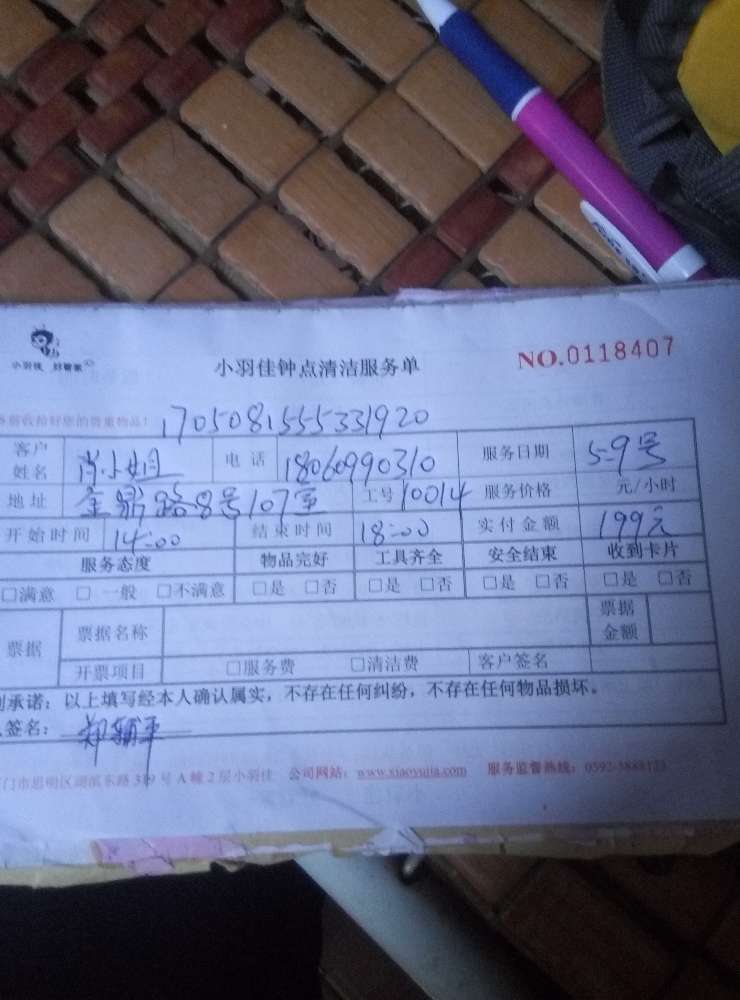 小羽佳 好管家
小羽佳钟点清洁服务单
NO.0118407
收拾好您的贵重物品!
1705081555331920
客户姓名 肖小姐 电话 18060990310 服务日期 5-9号
地址 金鼎路8号107室 工号 10014 服务价格 元/小时
开始时间 14:00 结束时间 18:00 实付金额 199元
服务态度 物品完好 工具齐全 安全结束 收到卡片
□满意 □一般 □不满意 □是 □否 □是 □否 □是 □否 □是 □否
票据 票据名称 票据金额
开票项目 □服务费 □清洁费 客户签名
承诺:以上填写经本人确认属实,不存在任何纠纷,不存在任何物品损坏。
签名: 郑辅平
门市思明区湖滨东路319号A幢2层小羽佳 公司网站:www.xiaoyujia.com 服务监督热线: